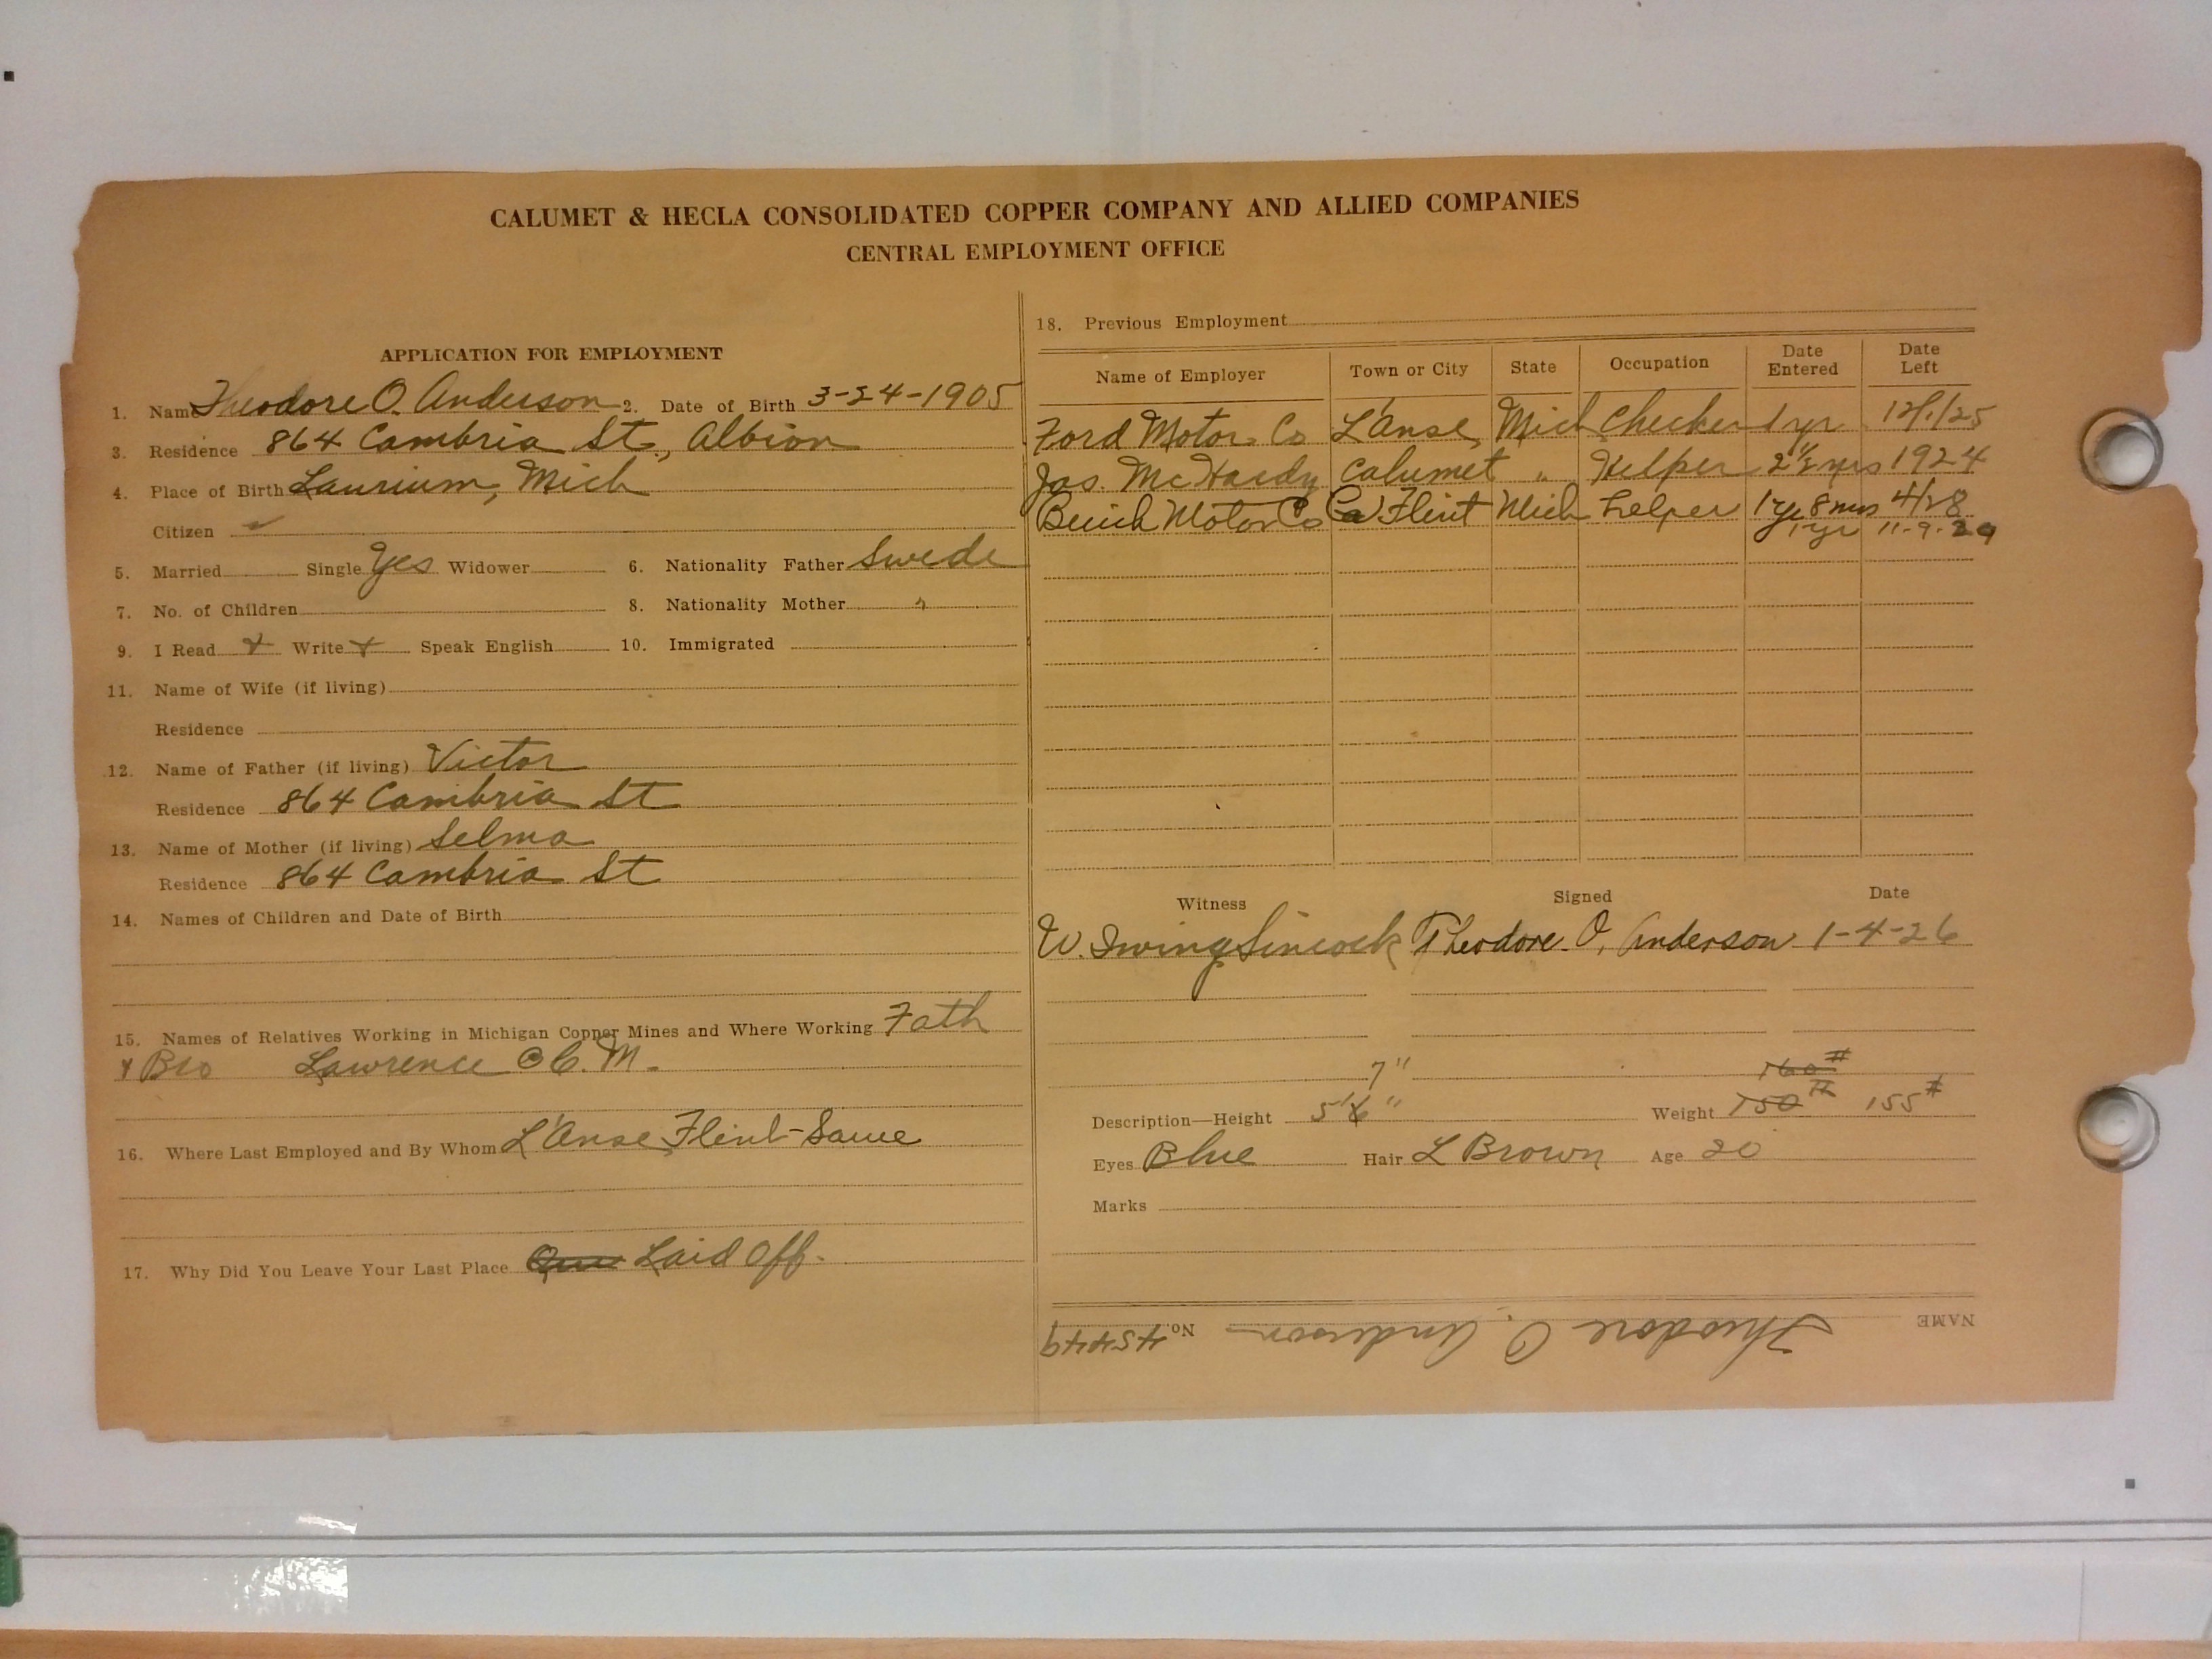 CALUMET & HECLA CONSOLIDATED COPPER COMPANY AND ALLIED COMPANIES
CENTRAL EMPLOYMENT OFFICE
APPLICATION FOR EMPLOYMENT
1. Name Theodore O. Anderson 2. Date of Birth 3-24-1905
3. Residence 864 Cambria St., Albion
4. Place of Birth Laurium, Mich
Citizen ✓
5. Married Single Yes Widower 6. Nationality Father Swede
7. No. of Children 8. Nationality Mother "
9. I Read Write Speak English 10. Immigrated
11. Name of Wife (if living)
Residence
12. Name of Father (if living) Victor
Residence 864 Cambria St
13. Name of Mother (if living) Selma
Residence 864 Cambria St
14. Names of Children and Date of Birth
15. Names of Relatives Working in Michigan Copper Mines and Where Working Fath
& Bro Lawrence C. M.
16. Where Last Employed and By Whom L'Anse, Flint-Same
17. Why Did You Leave Your Last Place Laid Off.
18. Previous Employment
Name of Employer Town or City State Occupation Date Entered Date Left
Ford Motor Co L'Anse, Mich Checker 1 yr 12/1/25
Jas. McHardy Calumet " Helper 2 1/2 yrs 1924
Buick Motor Co Flint Mich helper 1 yr 8 mos 4/28
1 yr 11-9-29
Witness Signed Date
W. Irving Sincock Theodore O. Anderson 1-4-26
7" 160#
Description—Height 5'6" Weight 150# 155#
Eyes Blue Hair L Brown Age 20
Marks
NAME Theodore O. Anderson No. 45449